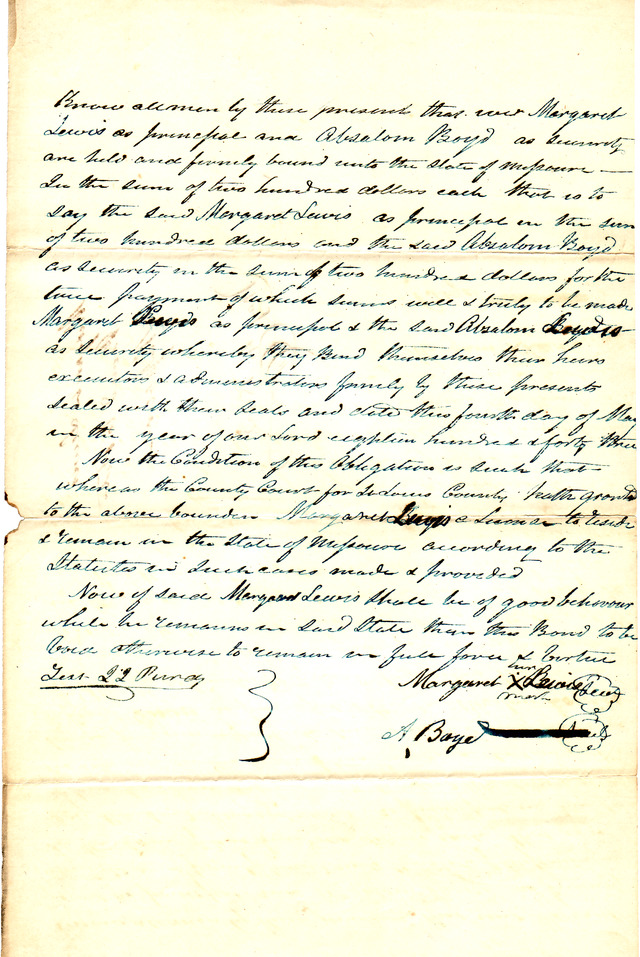 Know all men by these present that we Margaret
Lewis as principal and Absalom Boyd as security
are held and firmly bound unto the State of Missouri —
In the sum of two hundred dollars each that is to
say the said Margaret Lewis as principal in the sum
of two hundred dollars and the said Absalom Boyd
as security in the sum of two hundred dollars for the
true payment of which sums well & truly to be made
Margaret as principal & the said Absalom
as security whereby they Bind themselves their heirs
executors & administrators firmly by these presents
sealed with their seals and date this fourth day of May
in the year of our Lord eighteen hundred & forty three
Now the Condition of this Obligation is such that
whereas the County Court for St Louis County hath
to the above bounden Margaret a License to reside
& remain in the State of Missouri according to the
Statutes in such cases made & provided
Now if said Margaret Lewis shall be of good behaviour
while he remains in said State then this Bond to be
Void otherwise to remain in full force & Virtue
Test Purdy
Margaret her X mark Lewis Seal
A Boyd Seal